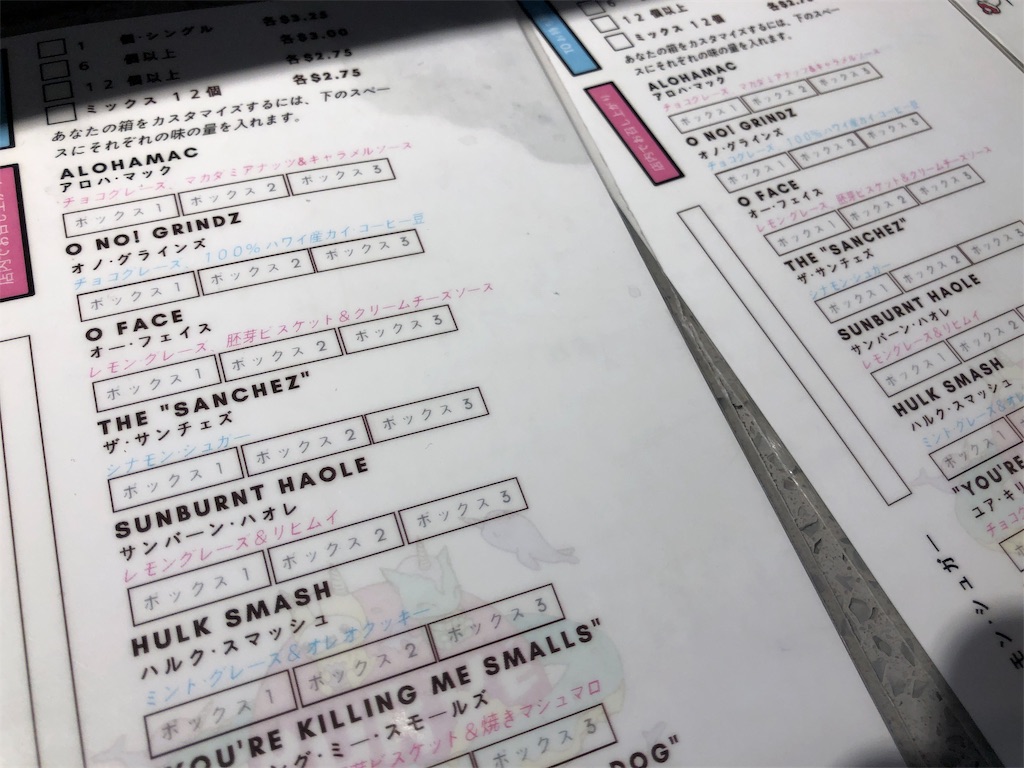 1 個・シングル 各$3.25
6 個以上 各$3.00
12 個以上 各$2.75
ミックス 12個 各$2.75
あなたの箱をカスタマイズするには、下のスペー
スにそれぞれの味の量を入れます。
ALOHAMAC
アロハ・マック
チョコグレーズ、マカダミアナッツ&キャラメルソース
ボックス 1 ボックス 2 ボックス 3
O NO! GRINDZ
オノ・グラインズ
チョコグレーズ、100%ハワイ産カイ コーヒー豆
ボックス 1 ボックス 2 ボックス 3
O FACE
オー・フェイス
レモングレーズ、胚芽ビスケット&クリームチーズソース
ボックス 1 ボックス 2 ボックス 3
THE "SANCHEZ"
ザ・サンチェズ
シナモン・シュガー
ボックス 1 ボックス 2 ボックス 3
SUNBURNT HAOLE
サンバーン・ハオレ
レモングレーズ&リヒムイ
ボックス 1 ボックス 2 ボックス 3
HULK SMASH
ハルク・スマッシュ
ミント・グレーズ&オレオクッキー
ボックス 1 ボックス 2 ボックス 3
YOU'RE KILLING ME SMALLS"
ング・ミー・スモールズ
ビスケット&焼きマシュマロ
ボックス 3
DOG"
12個以上
ミックス 12個
あなたの箱をカスタマイズするには、下のスペー
スにそれぞれの味の量を入れます。
ALOHAMAC
アロハ・マック
チョコグレーズ、マカダミアナッツ&キャラメルソース
ボックス 1 ボックス 2 ボックス 3
O NO! GRINDZ
オノ・グラインズ
チョコグレーズ、100%ハワイ産カイ コーヒー豆
ボックス 1 ボックス 2 ボックス 3
O FACE
オー・フェイス
レモングレーズ、胚芽ビスケット&クリームチーズソース
ボックス 1 ボックス 2 ボックス 3
THE "SANCHEZ"
ザ・サンチェズ
シナモン・シュガー
ボックス 1 ボックス 2 ボックス 3
SUNBURNT HAOLE
サンバーン・ハオレ
レモングレーズ&リヒムイ
ボックス 1 ボックス 2
HULK SMASH
ハルク・スマッシュ
ミントグレーズ&オレ
ボックス 1
"YOU'RE
ユア・キリ
チョコ